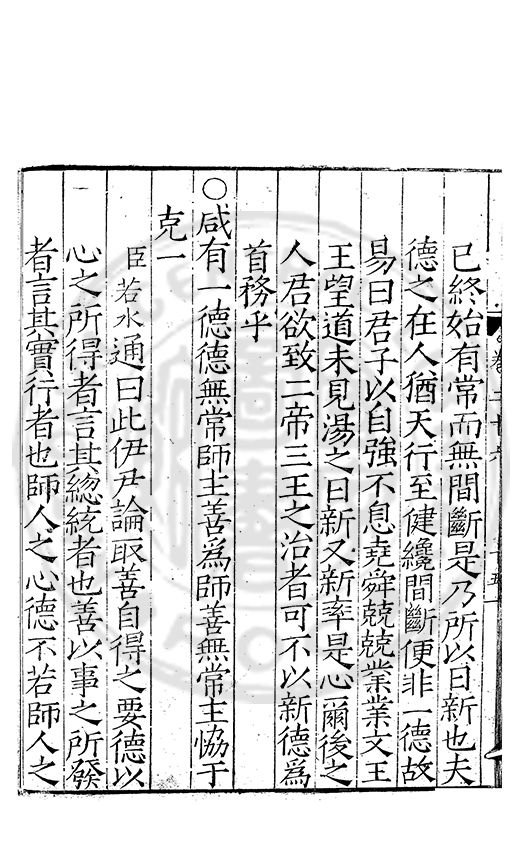 已終始有常而無間斷是乃所以日新也夫
德之在人猶天行至健纔間斷便非一德故
易曰君子以自強不息堯舜兢兢業業文王
王望道未見湯之日新又新率是心爾後之
人君欲致二帝三王之治者可不以新德爲
首務乎
○咸有一德德無常師主善爲師善無常主恊于
克一
臣若水通曰此伊尹論取善自得之要德以
心之所得者言其總統者也善以事之所發
者言其實行者也師人之心德不若師人之